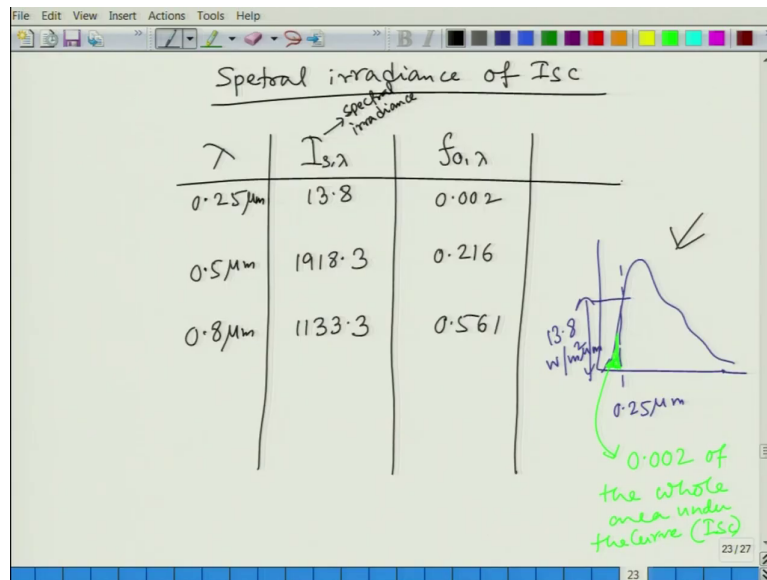 File Edit View Insert Actions Tools Help
Spetral irradiance of Isc
→ spectral irradiance
λ I_{s,λ} f_{0,λ}
0.25 μm 13.8 0.002
0.5 μm 1918.3 0.216
0.8 μm 1133.3 0.561
13.8
W/m² μm
0.25 μm
0.002 of
the whole
area under
the curve (Isc)
23/27
23